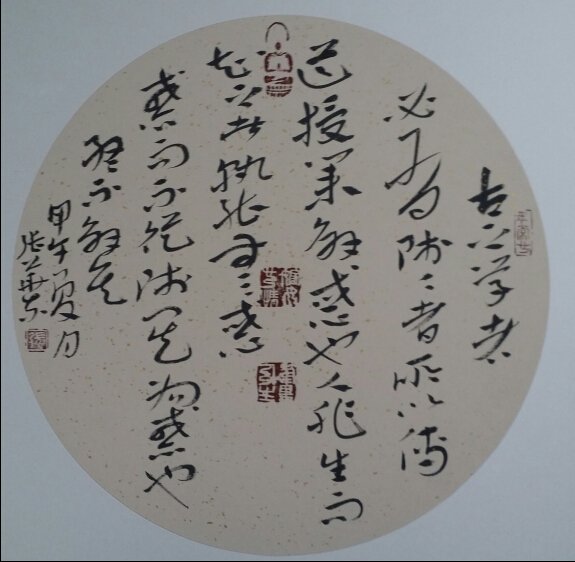 古之学者
必有師〻者所以傳
道授業解惑也人非生而
知之者孰能無惑
惑而不從師其為惑也
終不解矣
甲午夏月
張